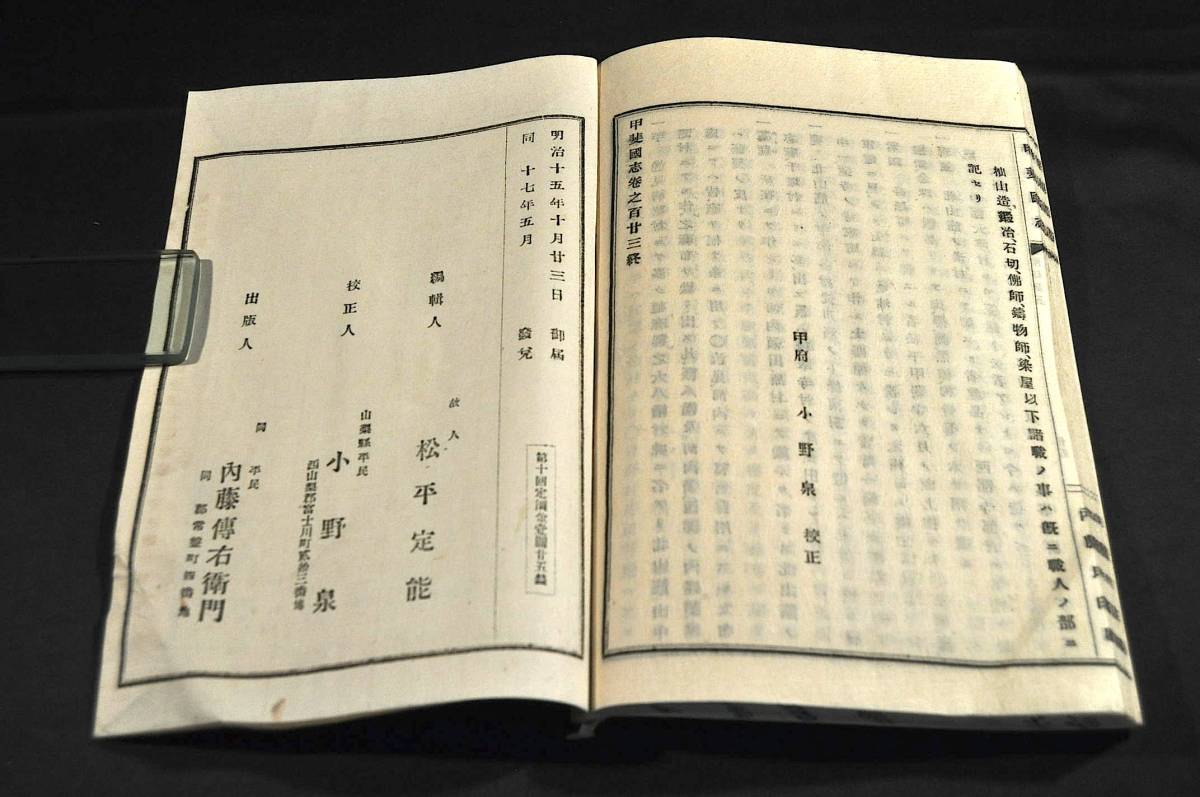 杣山造、鍛冶、石切、佛師、鑄物師、染屋以下諸職ノ事ハ既ニ職人ノ部ニ
記セリ
甲府 小野泉 校正
甲斐國志卷之百廿三終
明治十五年十月廿三日 御届
同 十七年五月 發兌
編輯人 故人 松平定能
校正人 山梨縣平民 小野泉
西山梨郡富士川町貳拾三番地
出版人 同 平民 內藤傳右衛門
同 郡常盤町四番地